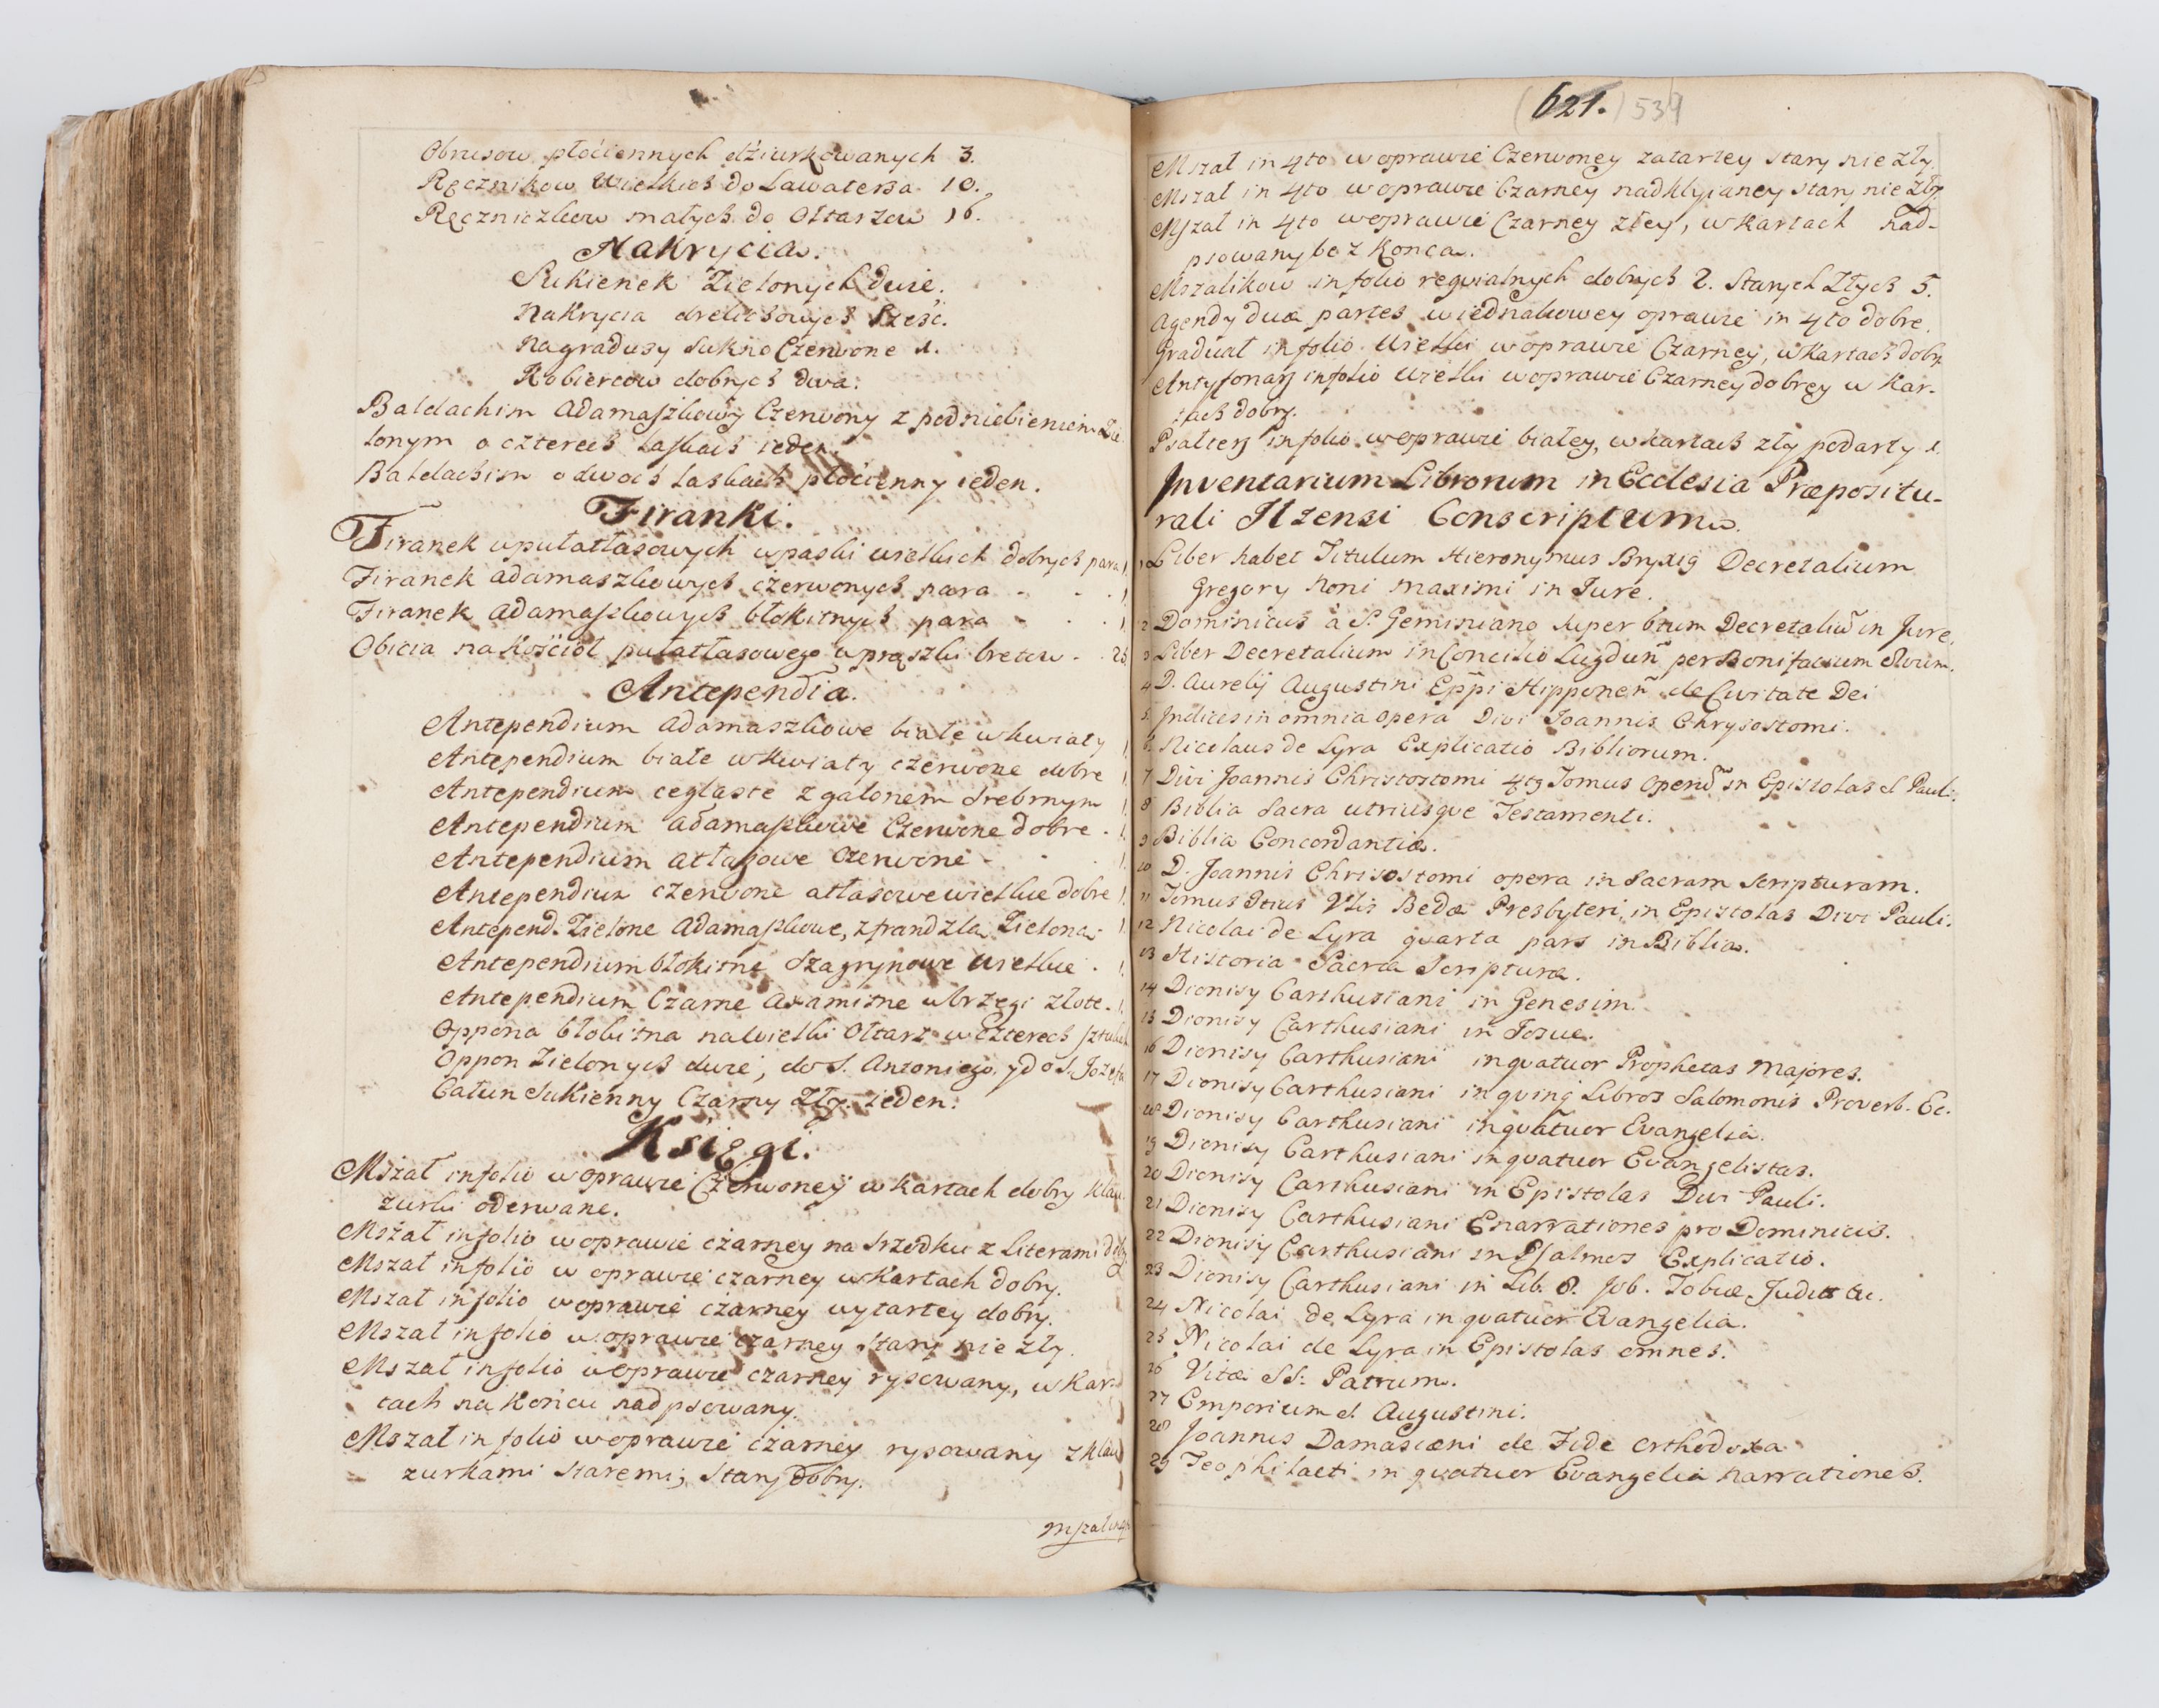 Obrusow płociennych dziurkowanych 3.
Ręcznikow Wielkich do Lawaterza 10.
Ręczniczkow małych do Ołtarzow 16.
Nakrycia.
Sukienek Zielonych dwie.
Nakrycia drelichowych Sześć.
Na gradusy Sukno Czerwone 1.
Kobiercow dobrych dwa.
Baldachim Adamaszkowy Czerwony z podniebieniem Zie
lonym o czterech laskach ieden.
Baldachim o dwoch laskach płocienny ieden.
Firanki.
Firanek wpułatłasowych w paski wielkich dobrych para 1.
Firanek adamaszkowych czerwonych para . . . 1.
Firanek Adamaszkowych błokitnych para . . . 1
Obicia na Kościoł pułatłasowego w prążki bretow . . 25
Antependia.
Antependium Adamaszkowe białe w kwiaty 1
Antependium białe w kwiaty czerwone dobre 1
Antependium ceglaste z galonem Srebrnym 1.
Antependium adamaszkowe Czerwone dobre . 1.
Antependium atłasowe Czerwone . . . 1.
Antependium czerwone atłasowe wielkie dobre 1.
Antepend. Zielone Adamaszkowe, z frandzlą Zieloną 1.
Antependium błokitne Szagrynowe wielkie . 1.
Antependium Czarne axamitne w brzegi złote . 1.
Oppona błokitna na wielki Ołtarz w czterech sztukach
Oppon Zielonych dwie, do S. Antoniego, y do S. Jozefa
Całun Sukienny Czarny Zły ieden.
Księgi.
Mszał in folio w oprawie Czerwoney w kartach dobry klau
zurki oderwane.
Mszał in folio w oprawie czarney na srzodku z Literami
Mszał in folio w oprawie czarney w Kartach dobry.
Mszał in folio w oprawie czarney wytartey dobry.
Mszał in folio w oprawie czarney Stary nie zły.
Mszał in folio w oprawie czarney rysowany, w Kar-
tach na Końcu nadpsowany.
Mszał in folio w oprawie czarney rysowany z klau
zurkami staremi, Stary dobry.
Mszał in 4to
621. 539
Mszał in 4to w oprawie Czerwoney zatartey stary nie zły.
Mszał in 4to w oprawie Czarney nadkłyianey stary nie zły.
Mszał in 4to w oprawie Czarney złey, w Kartach nad-
psowany bez Konca.
Mszalikow in folio requialnych dobrych 2. Starych Złych 5.
Agendy duæ partes w iednakowey oprawie in 4to dobre.
Graduał in folio Wielki w oprawie Czarney, w Kartach dobry
Antyfonarz in folio Wielki w oprawie Czarney dobrey w Kar-
tach dobry.
Psałterz in folio w oprawie białey, w kartach zły podarty 1.
Inventarium Librorum in Ecclesia Præpositu-
rali Ilzensi Conscriptum.
1 Liber habet Titulum Hieronymus Bryxig Decretalium
Gregory Noni Maximi in Jure.
2 Dominicus à S. Geminiano super 6tum Decretaliu͠ in Jure.
3 Liber Decretalium in Concilio Lugdun͠ per Bonifacium 8vum.
4 D. Aurelij Augustini Ep͠pi Hipponen͠ de Civitate Dei
5. Indices in omnia opera Divi Joannis Chrysostomi.
6. Nicolaus de Lyra Explicatio Bibliorum.
7 Divi Joannis Christostomi 4tg Tomus Operu͠ in Epistolas S Pauli.
8 Biblia Sacra utriusque Testamenti.
9 Biblia Concordantiæ.
10 D. Joannis Chrisostomi opera in Sacram Scripturam.
11 Tomus Bedæ Presbyteri, in Epistolas Divi Pauli.
12 Nicolai de Lyra quarta pars in Biblia.
13 Historia Sacræ Scripturæ.
14 Dionisy Carthusiani in Genesim.
15 Dionisy Carthusiani in Josue.
16 Dionisy Carthusiani in quatuor Prophetas Majores.
17 Dionisy Carthusiani in quinq Libros Salomonis Proverb. Ec.
18 Dionisy Carthusiani in quatuor Evangelia.
19 Dionisy Carthusiani in quatuor Evangelistas.
20 Dionisy Carthusiani in Epistolas Divi Pauli.
21 Dionisy Carthusiani Enarrationes pro Dominicis.
22 Dionisy Carthusiani in Psalmos Explicatio.
23 Dionisy Carthusiani in Lib. 8. Job. Tobiæ, Judit &c.
24 Nicolai de Lyra in quatuor Evangelia.
25 Nicolai de Lyra in Epistolas omnes.
26 Vitæ SS. Patrum.
27 Emporium S. Augustini.
28 Joannis Damasceni de Fide Orthodoxa
29 Teophilacti in quatuor Evangelia Narrationes.